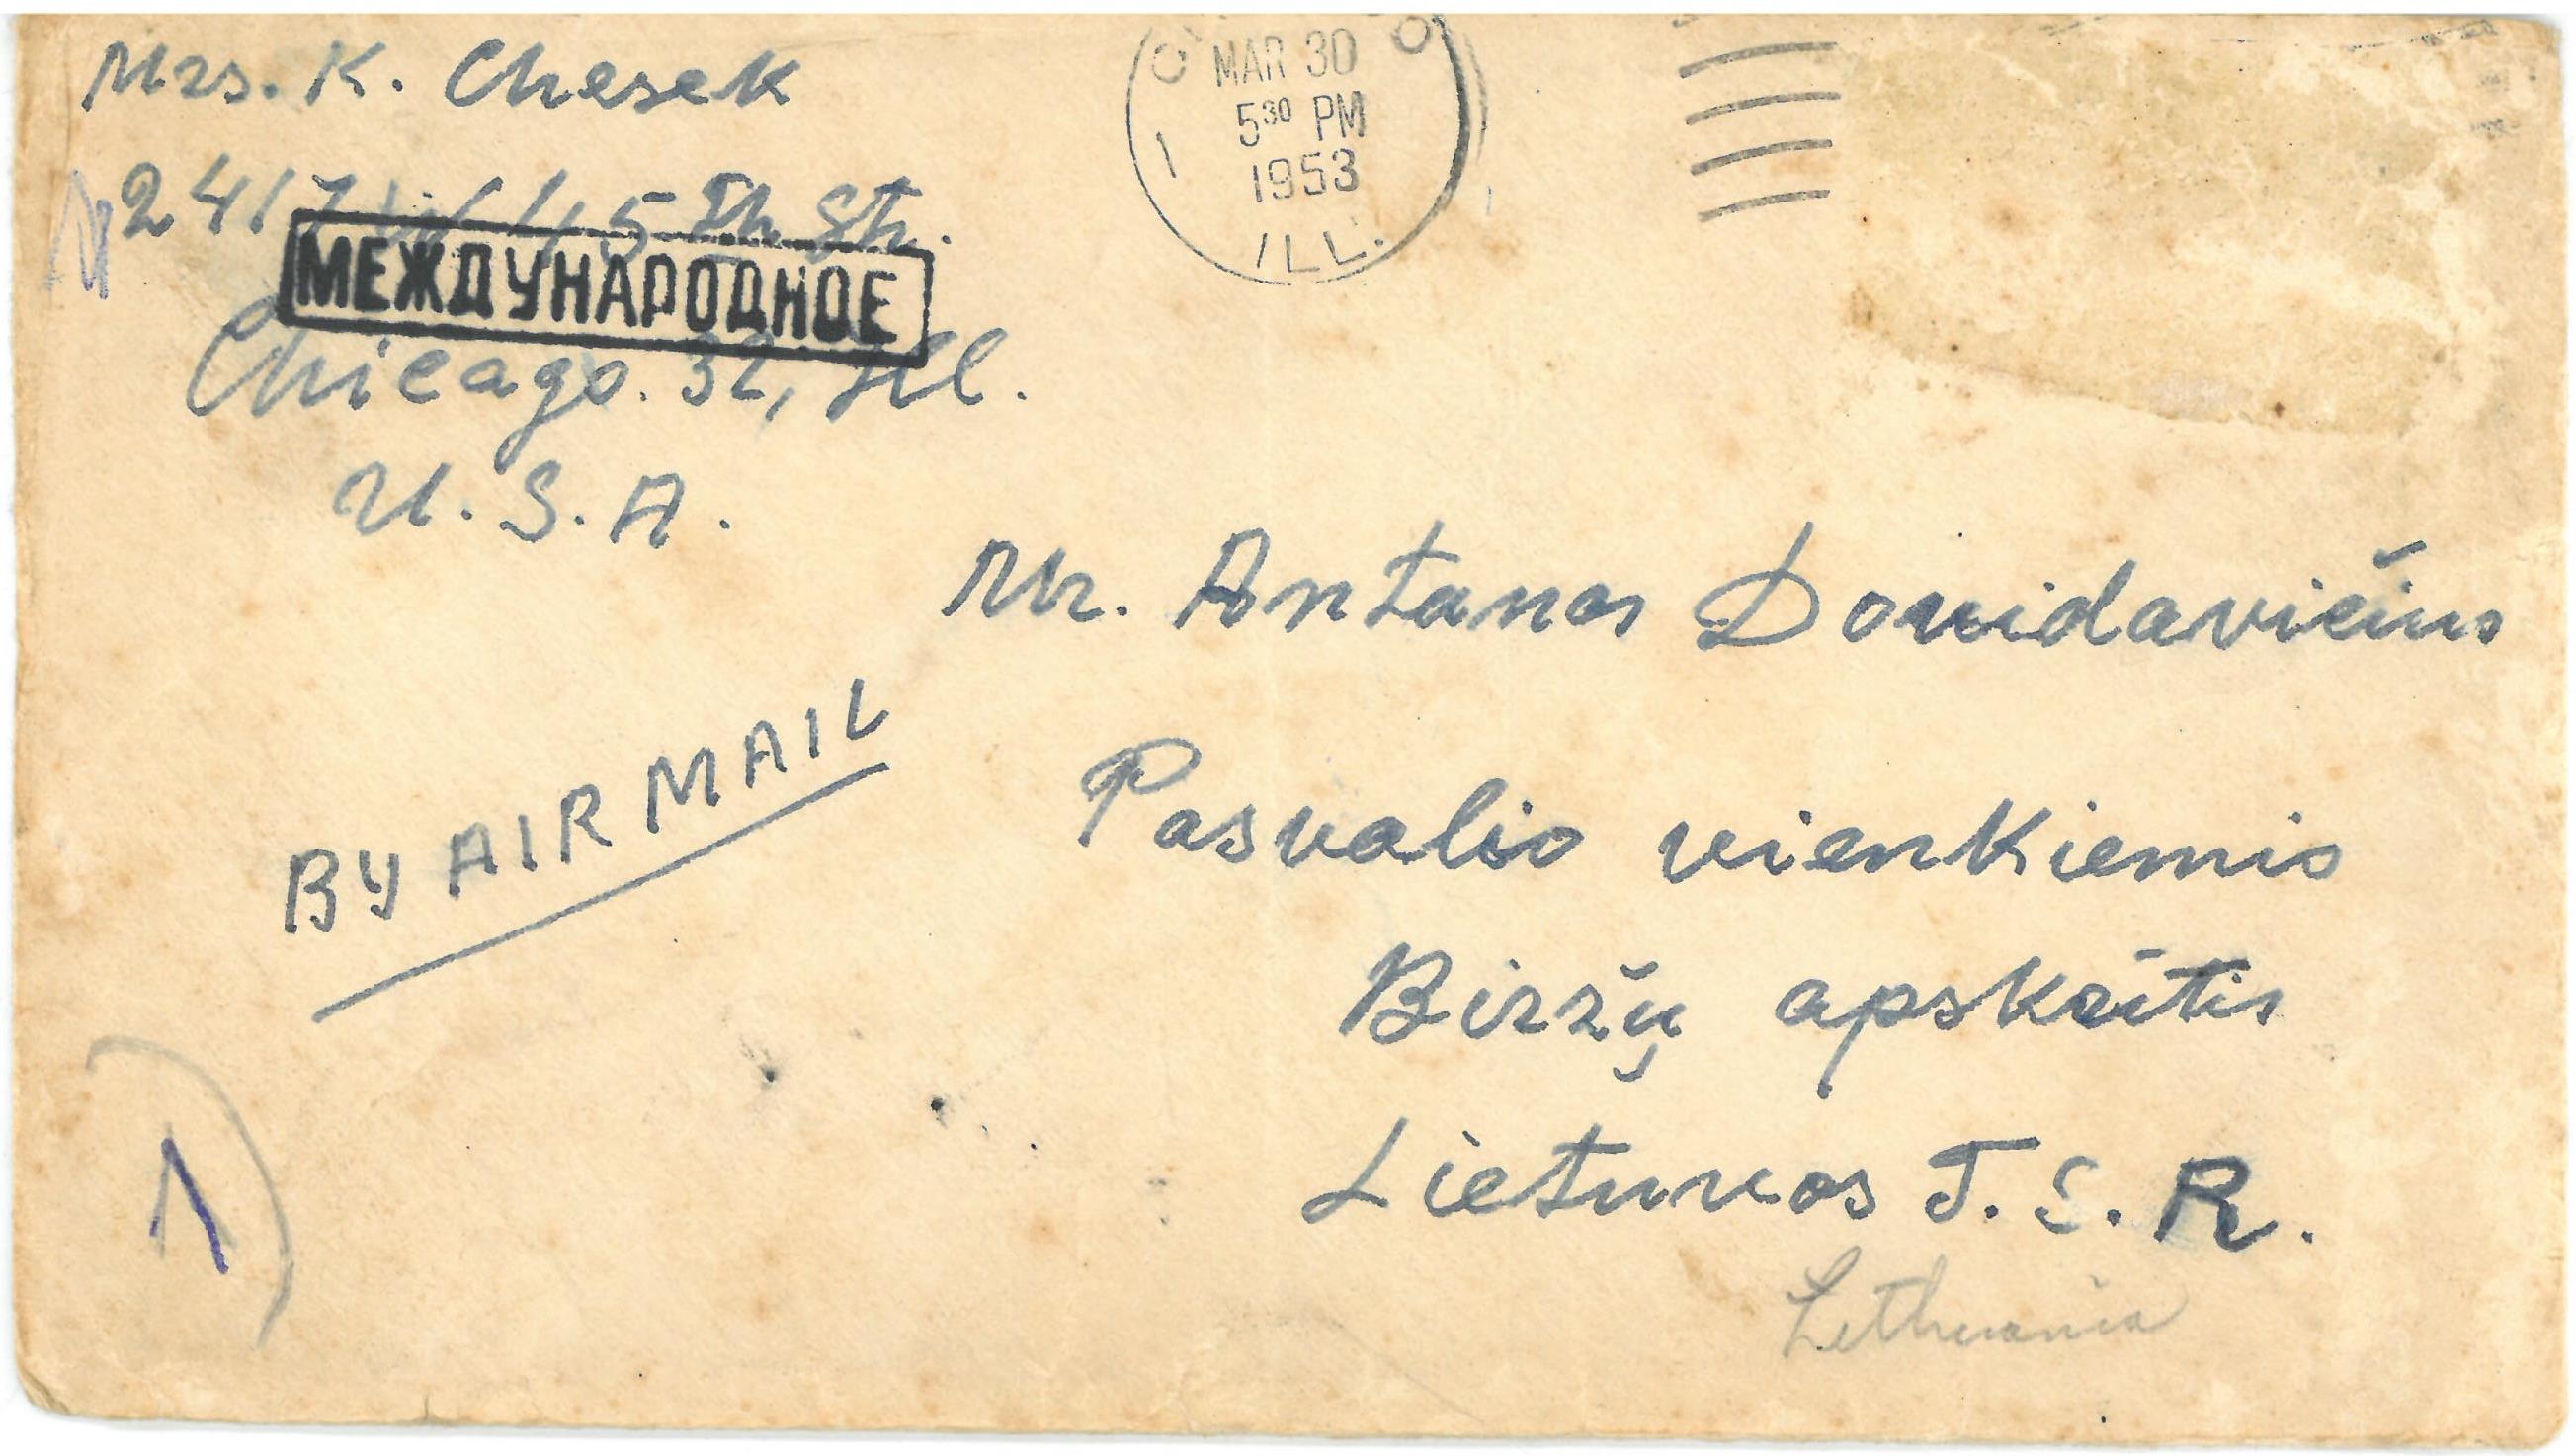 Mrs. K. Chesek
2417 W 45 th Str.
МЕЖДУНАРОДНОЕ
Chicago. 32, Ill.
U. S. A.
MAR 30
5 30 PM
1953
ILL.
Mr. Antanas Dovidavičius
BY AIR MAIL
Pasvalio vienkiemis
Biržų apskritis
Lietuvos T. S. R.
Lithuania
1